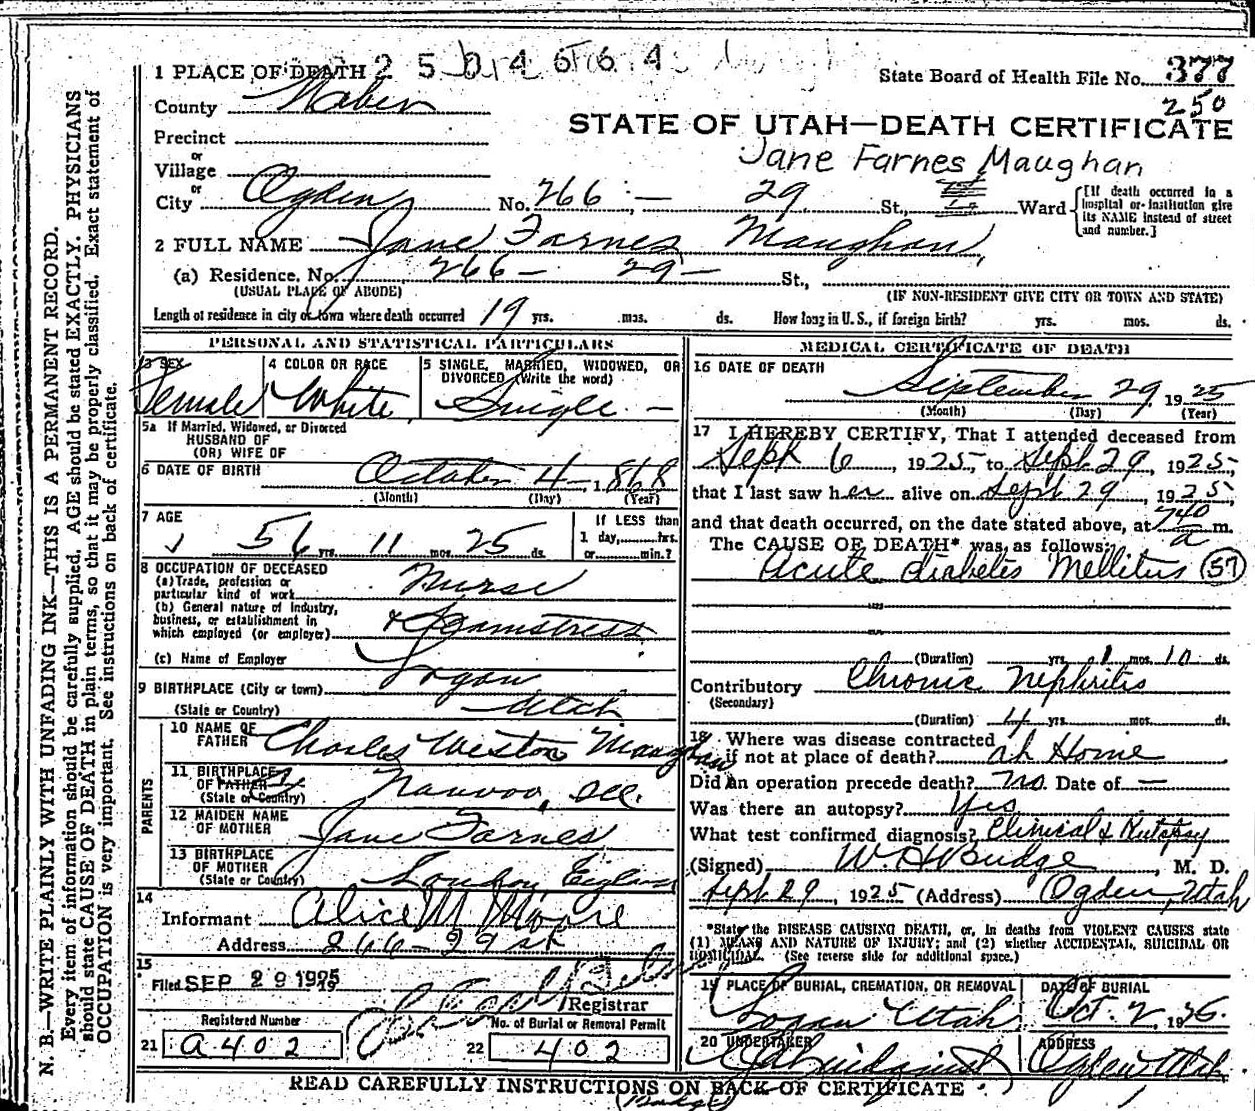 2 5 0 4 6 6 4
1 PLACE OF DEATH
State Board of Health File No. 377
250
County Weber
STATE OF UTAH—DEATH CERTIFICATE
Precinct
Jane Farnes Maughan
or
Village
or
City Ogden No. 266 - 29 St., Ward
[If death occurred in a hospital or institution give its NAME instead of street and number.]
2 FULL NAME Jane Farnes Maughan,
(a) Residence. No. 266 - 29 - St.,
(USUAL PLACE OF ABODE)
(IF NON-RESIDENT GIVE CITY OR TOWN AND STATE)
Length of residence in city or town where death occurred 19 yrs. mos. ds. How long in U. S., if foreign birth? yrs. mos. ds.
PERSONAL AND STATISTICAL PARTICULARS
3 SEX
Female
4 COLOR OR RACE
White
5 SINGLE, MARRIED, WIDOWED, OR DIVORCED (Write the word)
Single -
5a If Married, Widowed, or Divorced
HUSBAND OF
(OR) WIFE OF
6 DATE OF BIRTH
October 4 - 1868
(Month) (Day) (Year)
7 AGE
56 yrs. 11 mos. 25 ds.
If LESS than
1 day, hrs.
or min.?
8 OCCUPATION OF DECEASED
(a) Trade, profession or
particular kind of work Nurse
(b) General nature of industry,
business, or establishment in
which employed (or employer) & Seamstress
(c) Name of Employer
9 BIRTHPLACE (City or town) Logan
(State or Country) Utah
PARENTS
10 NAME OF
FATHER Charles Weston Maughan
11 BIRTHPLACE
OF FATHER
(State or Country) Nauvoo, Ill.
12 MAIDEN NAME
OF MOTHER Jane Farnes
13 BIRTHPLACE
OF MOTHER
(State or Country) London England
14
Informant Alice M Moore
Address 266 - 29 st
15
Filed SEP 29 1925
Registrar
Registered Number
21 a402
No. of Burial or Removal Permit
22 402
MEDICAL CERTIFICATE OF DEATH
16 DATE OF DEATH
September 29 1925
(Month) (Day) (Year)
17 I HEREBY CERTIFY, That I attended deceased from
Sept 6 1925, to Sept 29, 1925,
that I last saw her alive on Sept 29, 1925,
and that death occurred, on the date stated above, at 740 a m.
The CAUSE OF DEATH* was as follows:
Acute diabetes Mellitus (57)
(Duration) yrs. 1 mos. 10 ds.
Contributory Chronic Nephritis
(Secondary)
(Duration) 4 yrs. mos. ds.
18 Where was disease contracted
if not at place of death? at Home
Did an operation precede death? no. Date of —
Was there an autopsy? Yes
What test confirmed diagnosis? Clinical &
(Signed) W. H Budge, M. D.
Sept 29, 1925 (Address) Ogden, Utah
*State the DISEASE CAUSING DEATH, or, in deaths from VIOLENT CAUSES state
(1) MEANS AND NATURE OF INJURY; and (2) whether ACCIDENTAL, SUICIDAL OR
HOMICIDAL. (See reverse side for additional space.)
19 PLACE OF BURIAL, CREMATION, OR REMOVAL
Logan Utah
DATE OF BURIAL
Oct. 2, 1925.
20 UNDERTAKER
ADDRESS
Ogden Utah
READ CAREFULLY INSTRUCTIONS ON BACK OF CERTIFICATE
(Budge)
N. B.—WRITE PLAINLY WITH UNFADING INK—THIS IS A PERMANENT RECORD.
Every item of information should be carefully supplied. AGE should be stated EXACTLY. PHYSICIANS
should state CAUSE OF DEATH in plain terms, so that it may be properly classified. Exact statement of
OCCUPATION is very important. See instructions on back of certificate.